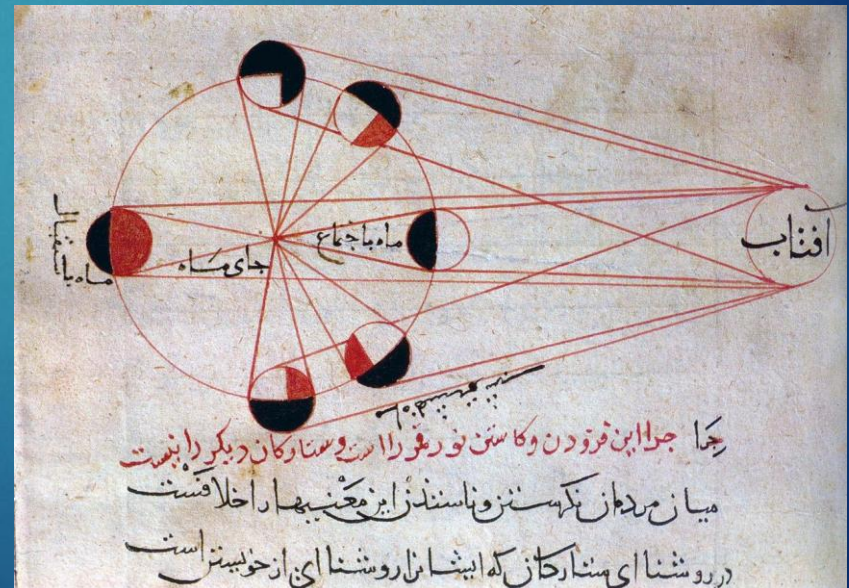 ماه باستقبال
جای ماه
ماه باجتماع
افتاب
جرا جرا این فزودن وکاستن نور قمر را است وستارکان دیکر را نیست
میان مردمان این معنیها را خلافست
در روشنا ای ستارکان که ایشانرا روشنا ای از خویشتن است